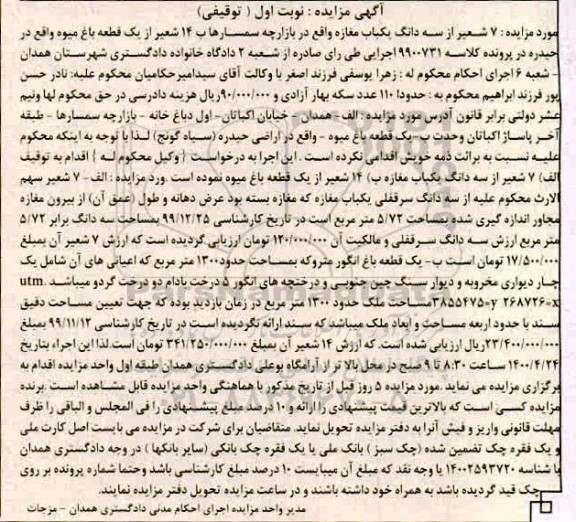 آگهی مزایده : نوبت اول ( توقیفی)
مورد مزایده : ۷ شعیر از سه دانگ یکباب مغازه واقع در بازارچه سمسارها ب ۱۴ شعیر از یک قطعه باغ میوه واقع در
حیدره در پرونده کلاسه ۹۹۰۰۷۳۱ اجرایی طی رای صادره از شعبه ۲ دادگاه خانواده دادگستری شهرستان همدان
- شعبه ۶ اجرای احکام محکوم له : زهرا یوسفی فرزند اصغر با وکالت آقای سیدامیرحکامیان محکوم علیه: نادر حسن
پور فرزند ابراهیم محکوم به : حدودا ۱۱۰ عدد سکه بهار آزادی و ۹۰/۰۰۰/۰۰۰ریال هزینه دادرسی در حق محکوم لها ونیم
عشر دولتی برابر قانون آدرس مورد مزایده : الف- همدان - خیابان اکباتان- اول دباغ خانه - بازارچه سمسارها - طبقه
آخر پاساژ اکباتان وحدت ب- یک قطعه باغ میوه - واقع در اراضی حیدره (سیاه گونج) لذا با توجه به اینکه محکوم
علیه نسبت به برائت ذمه خویش اقدامی نکرده است . این اجرا به درخواست { وکیل محکوم له } اقدام به توقیف
الف) ۷ شعیر از سه دانگ یکباب مغازه ب) ۱۴ شعیر از یک قطعه باغ میوه نموده است .ورد مزایده : الف- ۷ شعیر سهم
الارث محکوم علیه از سه دانگ سرقفلی یکباب مغازه که مغازه بسته بود عرض دهانه و طول (عمق آن) از بیرون مغازه
مجاور اندازه گیری شده بمساحت ۵/۷۲ متر مربع است در تاریخ کارشناسی ۹۹/۱۲/۲۵ بمساحت سه دانگ برابر ۵/۷۲
متر مربع ارزش سه دانگ سرقفلی و مالکیت آن ۱۲۰/۰۰۰/۰۰۰ تومان ارزیابی گردیده است که ارزش ۷ شعیر آن بمبلغ
۱۷/۵۰۰/۰۰۰ تومان است ب- یک قطعه باغ انگور متروکه بمساحت حدود۱۳۰۰ متر مربع که اعیانی های آن شامل یک
چار دیواری مخروبه و دیوار سنگ چین جنوبی و درختچه های انگور ۵ درخت بادام دو درخت گردو میباشد .utm
x=۲۶۸۷۲۶ y=۳۸۵۵۴۷۵مساحت ملک حدود ۱۳۰۰ متر مربع در زمان بازدید بوده که جهت تعیین مساحت دقیق
سند با حدود اربعه مساحت و ابعاد ملک میباشد که سند ارائه نگردیده است در تاریخ کارشناسی ۹۹/۱۱/۱۲ بمبلغ
۲۳/۴۰۰/۰۰۰/۰۰۰ریال ارزیابی شده است. که ارزش ۱۴ شعیر آن بمبلغ ۳۴۱/۲۵۰/۰۰۰ تومان است.لذا این اجراء بتاریخ
۱۴۰۰/۴/۲۴ ساعت ۸:۳۰ تا ۹ صبح در محل بالا تر از آرامگاه بوعلی دادگستری همدان طبقه اول واحد مزایده اقدام به
برگزاری مزایده می نماید .مورد مزایده ۵ روز قبل از تاریخ مذکور با هماهنگی واحد مزایده قابل مشاهده است .برنده
مزایده کسی است که بالاترین قیمت پیشنهادی را ارائه و ۱۰ درصد مبلغ پیشنهادی را فی المجلس و الباقی را ظرف
مهلت قانونی واریز و فیش آنرا به دفتر مزایده تحویل نماید. متقاضیان برای شرکت در مزایده می بایست اصل کارت ملی
و یک فقره چک تضمین شده (چک سبز ) بانک ملی یا یک فقره چک بانکی (سایر بانکها ) در وجه دادگستری همدان
با شناسه ۱۴۰۰۲۵۹۳۷۲۰ یا وجه نقد که مبلغ آن میبایست ۱۰ درصد مبلغ کارشناسی باشد وحتما شماره پرونده بر روی
چک قید گردیده باشد به همراه خود داشته باشند و در ساعت مزایده تحویل دفتر مزایده نمایند.
مدیر واحد مزایده اجرای احکام مدنی دادگستری همدان - مزجات